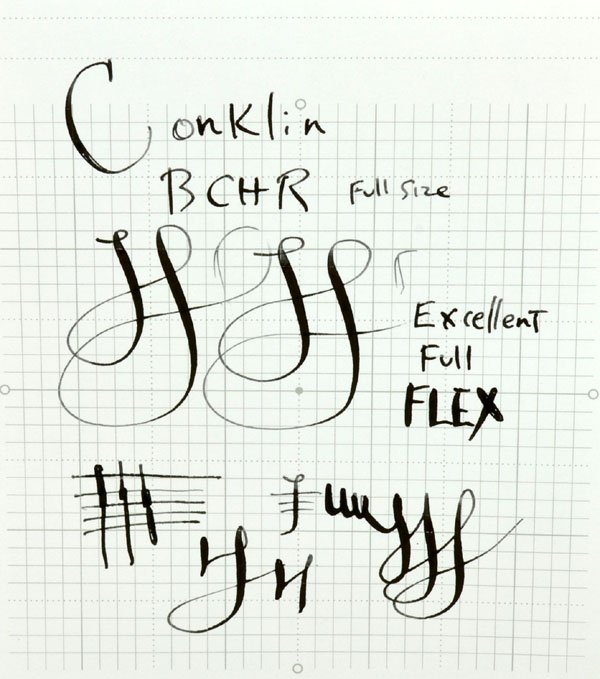 Conklin
BCHR Full Size
Excellent
Full
FLEX